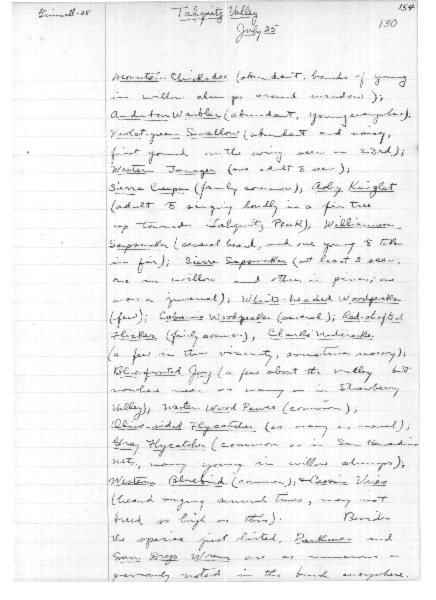 Grinnell-08
Tahquitz Valley
July 25
154
130
Mountain Chickadee (abundant, bands of young
in willow clumps around meadow);
Audubon Warbler (abundant, young everywhere);
Violet-green Swallow (abundant and noisy,
first young on the wing seen on 23rd);
Western Tanager (one adult ♂ seen);
Sierra Creeper (fairly common); Ruby Kinglet
(adult ♂ singing loudly in a fir tree
up towards Tahquitz Peak); Williamson
Sapsucker (several heard, and one young ♂ taken
in fir); Sierra Sapsucker (at least 3 seen,
one in willow and others in pines; one
was a juvenal); White-headed Woodpecker
(few); Cabanis Woodpecker (several); Red-shafted
Flicker (fairly common), Clarke Nutcracker
(a few in this vicinity, sometimes noisy);
Blue-fronted Jay (a few about the valley but
nowhere near as many as in Strawberry
Valley); Western Wood Pewee (common);
Olive-sided Flycatcher (as many as usual);
Gray Flycatcher (common as in San Bernardino
mts, many young in willow clumps);
Western Bluebird (common); Cassin Vireo
(heard singing several times, may not
breed so high as this). Besides
the species just listed, Parkman and
San Diego Wrens are as numerous as
previously noted in the brush everywhere.